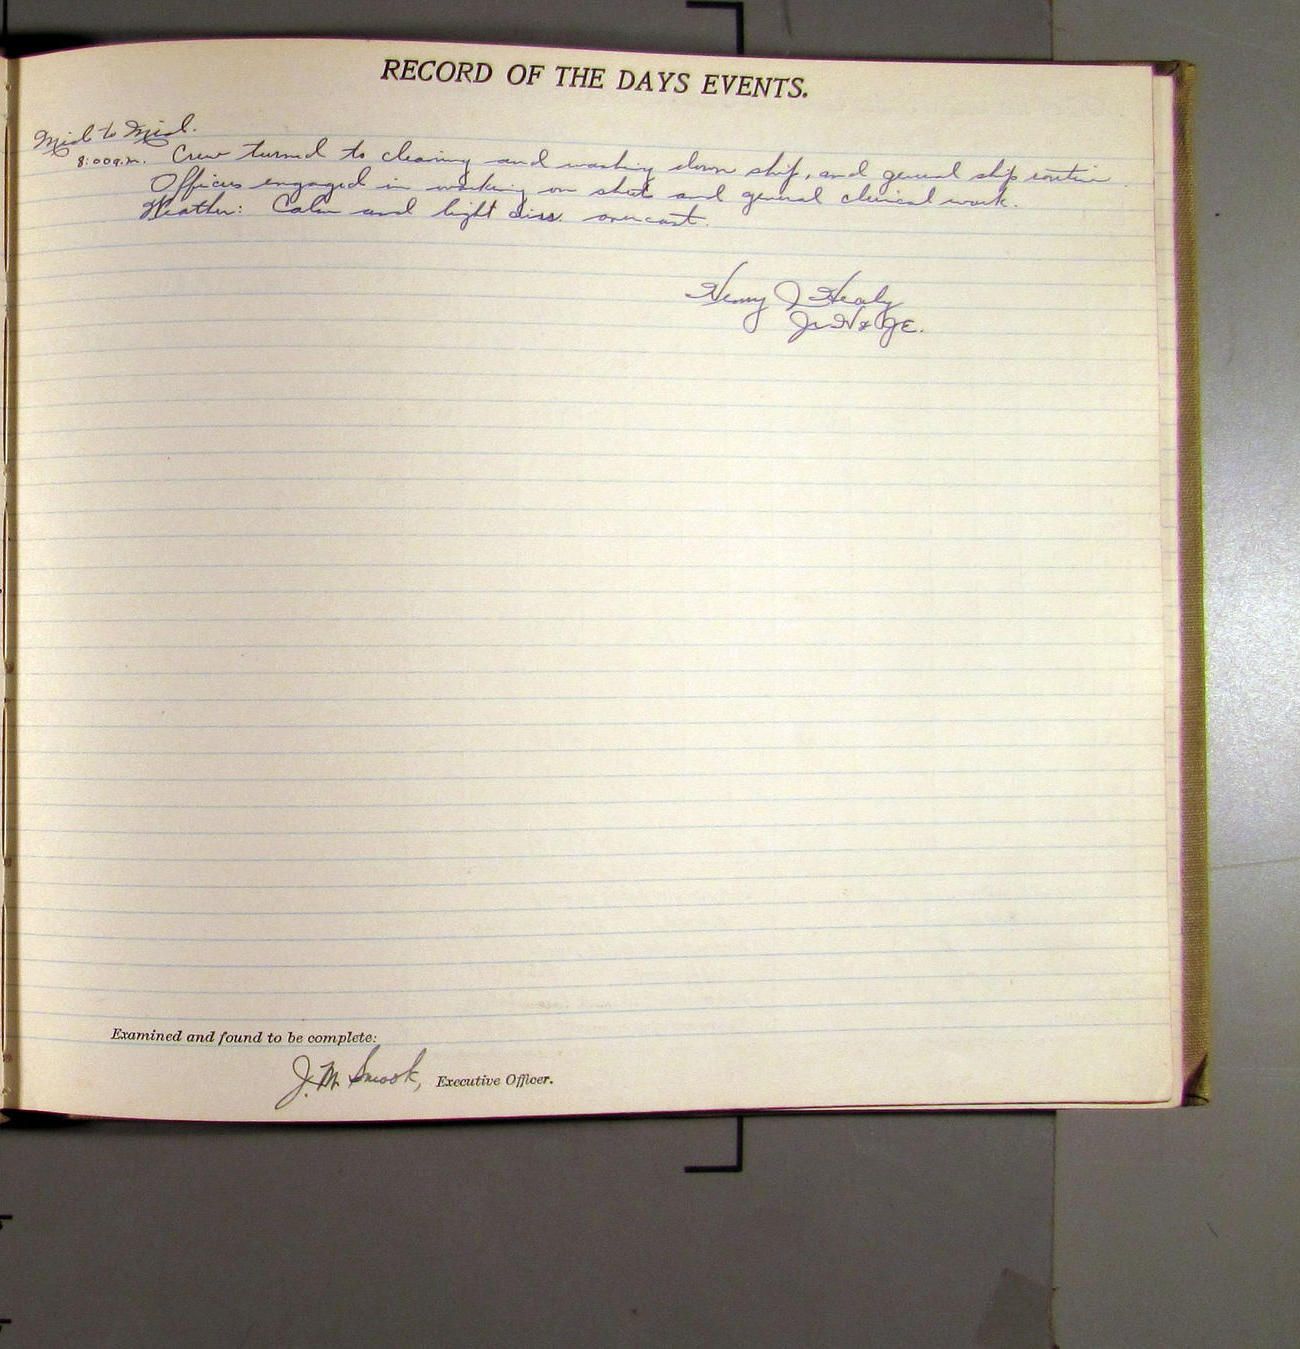 RECORD OF THE DAYS EVENTS.
Mid to Mid.
8:00a.m. Crew turned to cleaning and washing down ship, and general ship routine.
Officers engaged in working on sheet and general clerical work.
Weather: Calm and light airs. overcast.
Henry J Healy
Jr H & GE.
Examined and found to be complete:
J. M. Smook, Executive Officer.